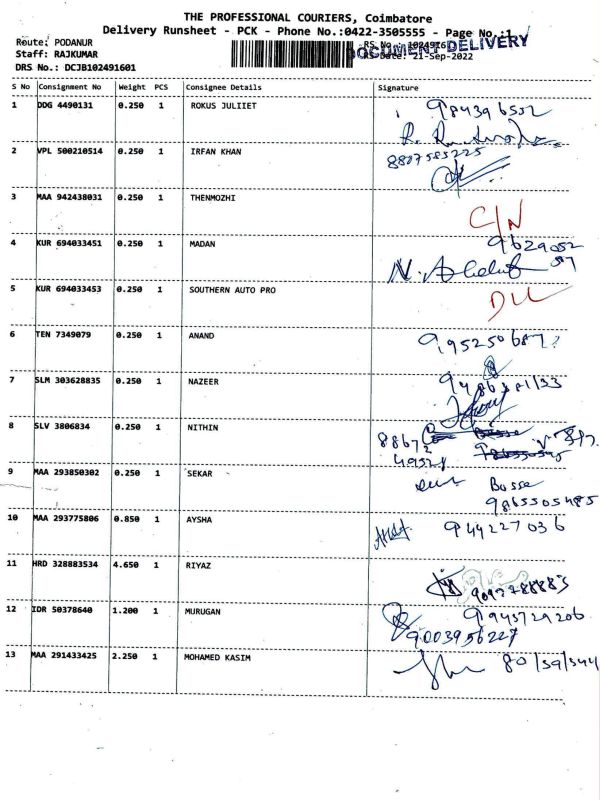 THE PROFESSIONAL COURIERS, Coimbatore
Delivery Runsheet - PCK - Phone No.:0422-3505555 - Page No.:1
Route: PODANUR
DOCUMENT DELIVERY
Staff: RAJKUMAR
RS Date: 21-Sep-2022
DRS No.: DCJB102491601
S No Consignment No Weight PCS Consignee Details Signature
1 DDG 4490131 0.250 1 ROKUS JULIIET
2 VPL 500210514 0.250 1 IRFAN KHAN 8807585225
3 MAA 942438031 0.250 1 THENMOZHI C/N
4 KUR 694033451 0.250 1 MADAN 9629052
57
5 KUR 694033453 0.250 1 SOUTHERN AUTO PRO
6 TEN 7349079 0.250 1 ANAND
7 SLM 303628835 0.250 1 NAZEER
8 SLV 3806834 0.250 1 NITHIN
9 MAA 293850302 0.250 1 SEKAR Bosse
9865505485
10 MAA 293775806 0.850 1 AYSHA 944227036
11 HRD 328883534 4.650 1 RIYAZ
12 IDR 50378640 1.200 1 MURUGAN 9943729206
9003956227
13 MAA 291433425 2.250 1 MOHAMED KASIM 80/59/544